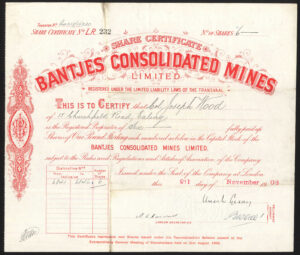 SHARE CERTIFICATE No LR. 232
No OF SHARES 6
SHARE CERTIFICATE
BANTJES CONSOLIDATED MINES
LIMITED
REGISTERED UNDER THE LIMITED LIABILITY LAWS OF THE TRANSVAAL.
THIS IS TO CERTIFY that Col. Joseph Wood
of Road, Ealing
is the Registered Proprietor of fully paid up
Shares of One Pound Sterling each numbered as below in the Capital Stock of the
BANTJES CONSOLIDATED MINES LIMITED,
subject to the Rules and Regulations and Articles of Association of the Company
Issued under the Seal of the Company at London
this day of November 1908
LONDON SECRETARY
This Certificate represents new Shares issued under the Reconstruction Scheme passed at the
Extraordinary General Meeting of Shareholders held on 31st August 1908